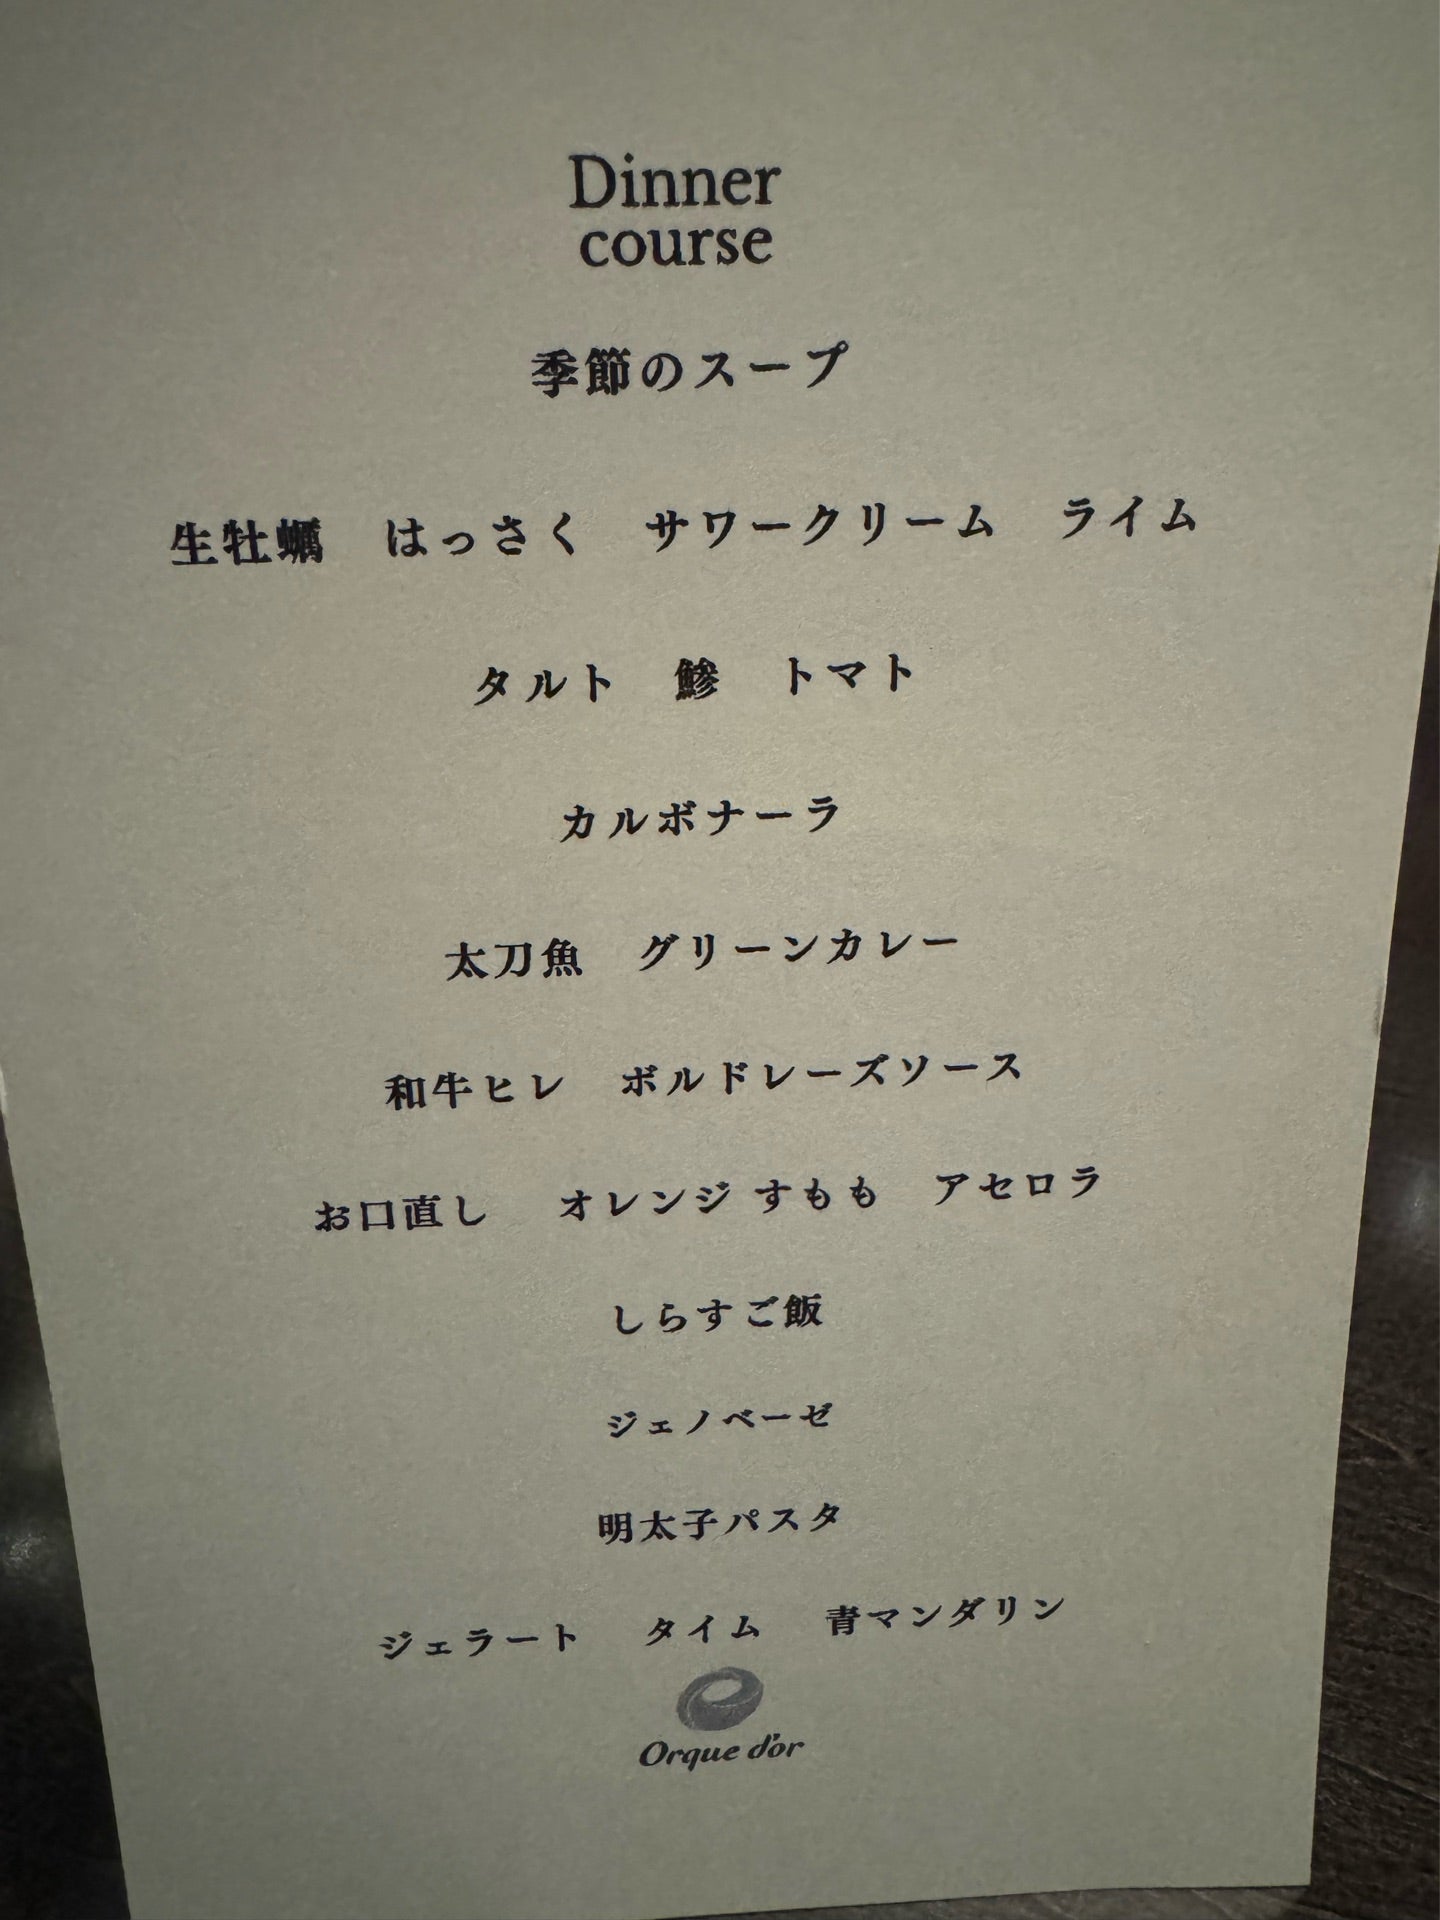 Dinner
course
季節のスープ
生牡蠣　はっさく　サワークリーム　ライム
タルト　鯵　トマト
カルボナーラ
太刀魚　グリーンカレー
和牛ヒレ　ボルドレーズソース
お口直し　オレンジ すもも　アセロラ
しらすご飯
ジェノベーゼ
明太子パスタ
ジェラート　タイム　青マンダリン
Orque d'or